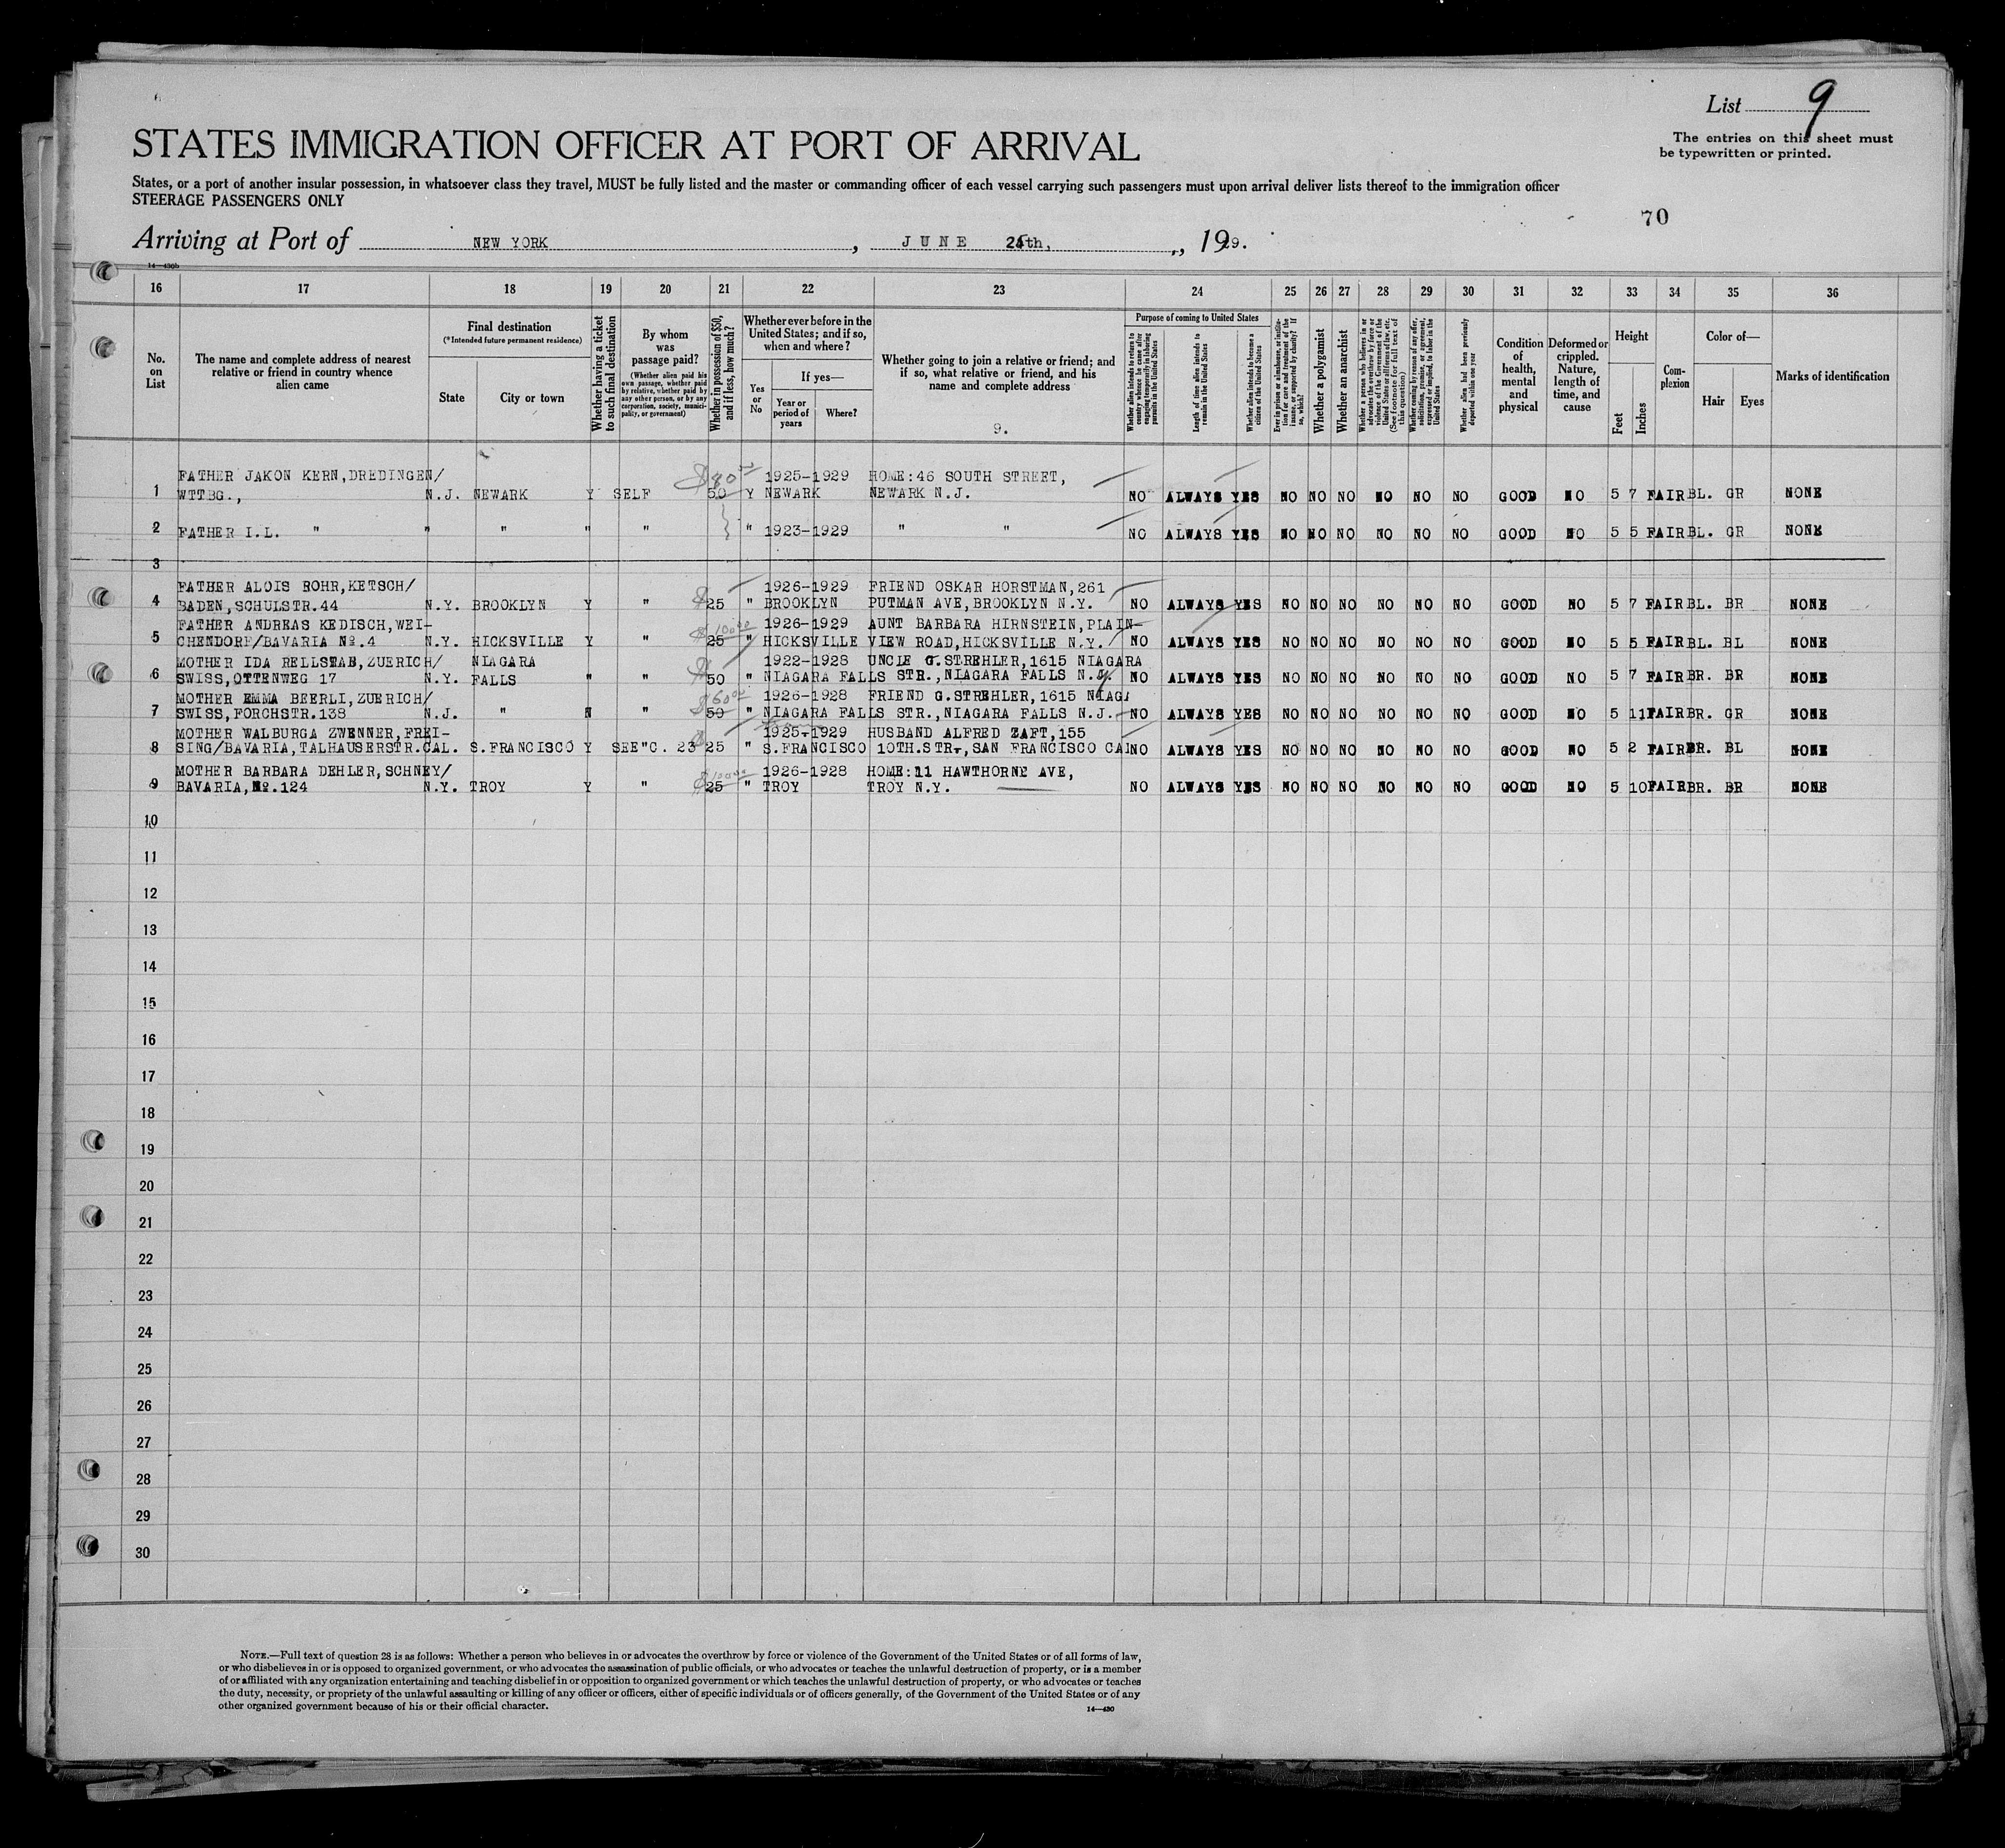 List 9
The entries on this sheet must
be typewritten or printed.
STATES IMMIGRATION OFFICER AT PORT OF ARRIVAL
States, or a port of another insular possession, in whatsoever class they travel, MUST be fully listed and the master or commanding officer of each vessel carrying such passengers must upon arrival deliver lists thereof to the immigration officer
STEERAGE PASSENGERS ONLY
70
Arriving at Port of NEW YORK, JUNE th, 1929.
14—430b
16 17 18 19 20 21 22 23 24 25 26 27 28 29 30 31 32 33 34 35 36
No.
on
List
The name and complete address of nearest
relative or friend in country whence
alien came
Final destination
(*Intended future permanent residence)
State
City or town
Whether having a ticket
to such final destination
By whom
was
passage paid?
(Whether alien paid his
own passage, whether paid
by relative, whether paid by
any other person, or by any
corporation, society, munici-
pality, or government)
Whether in possession of $50,
and if less, how much?
Whether ever before in the
United States; and if so,
when and where?
Yes
or
No
If yes—
Year or
period of
years
Where?
Whether going to join a relative or friend; and
if so, what relative or friend, and his
name and complete address
9.
Purpose of coming to United States
Whether alien intends to return to
country whence he came after
engaging temporarily in laboring
pursuits in the United States
Length of time alien intends to
remain in the United States
Whether alien intends to become a
citizen of the United States
Ever in prison or almshouse, or institu-
tion for care and treatment of the
insane, or supported by charity? If
so, which?
Whether a polygamist
Whether an anarchist
Whether a person who believes in or
advocates the overthrow by force or
violence of the Government of the
United States or all forms of law, etc.
(See footnote for full text of
this question)
Whether coming by reason of any offer,
solicitation, promise, or agreement,
expressed or implied, to labor in the
United States
Whether alien had been previously
deported within one year
Condition
of
health,
mental
and
physical
Deformed or
crippled.
Nature,
length of
time, and
cause
Height
Feet
Inches
Com-
plexion
Color of—
Hair
Eyes
Marks of identification
FATHER JAKON KERN, DREDINGEN/ $80 1925-1929 HOME:46 SOUTH STREET,
1 WTTBG., N.J. NEWARK Y SELF 50 Y NEWARK NEWARK N.J. NO ALWAYS YES NO NO NO NO NO NO GOOD NO 5 7 FAIR BL. GR NONE
2 FATHER I.L. " " " " " " 1923-1929 " " NO ALWAYS YES NO NO NO NO NO NO GOOD NO 5 5 FAIR BL. GR NONE
3
FATHER ALOIS ROHR, KETSCH/ 1926-1929 FRIEND OSKAR HORSTMAN, 261
4 BADEN, SCHULSTR.44 N.Y. BROOKLYN Y " $25 " BROOKLYN PUTMAN AVE, BROOKLYN N.Y. NO ALWAYS YES NO NO NO NO NO NO GOOD NO 5 7 FAIR BL. BR NONE
FATHER ANDREAS KEDISCH, WEI- $100 1926-1929 AUNT BARBARA HIRNSTEIN, PLAIN-
5 CHENDORF/BAVARIA No.4 N.Y. HICKSVILLE Y " 25 " HICKSVILLE VIEW ROAD, HICKSVILLE N.Y. NO ALWAYS YES NO NO NO NO NO NO GOOD NO 5 5 FAIR BL. BL NONE
MOTHER IDA RELLSTAB, ZUERICH/ NIAGARA 1922-1928 UNCLE G.STREHLER, 1615 NIAGARA
6 SWISS, OTTENWEG 17 N.Y. FALLS " " $50 " NIAGARA FALLS STR., NIAGARA FALLS N.Y. NO ALWAYS YES NO NO NO NO NO NO GOOD NO 5 7 FAIR BR. BR NONE
MOTHER EMMA BEERLI, ZUERICH/ $60 1926-1928 FRIEND G.STREHLER, 1615 NIAGA
7 SWISS, FORCHSTR.138 N.J. " N " 50 " NIAGARA FALLS STR., NIAGARA FALLS N.J. NO ALWAYS YES NO NO NO NO NO NO GOOD NO 5 11 FAIR BR. GR NONE
MOTHER WALBURGA ZWENNER, FREI- 1925-1929 HUSBAND ALFRED ZAFT, 155
8 SING/BAVARIA, TALHAUSERSTR. CAL. S.FRANCISCO Y SEE"C. 23 25 " S.FRANCISCO 10TH.STR., SAN FRANCISCO CAL NO ALWAYS YES NO NO NO NO NO NO GOOD NO 5 2 FAIR BR. BL NONE
MOTHER BARBARA DEHLER, SCHNEY/ $100 1926-1928 HOME:11 HAWTHORNE AVE,
9 BAVARIA, No.124 N.Y. TROY Y " 25 " TROY TROY N.Y. NO ALWAYS YES NO NO NO NO NO NO GOOD NO 5 10 FAIR BR. BR NONE
10
11
12
13
14
15
16
17
18
19
20
21
22
23
24
25
26
27
28
29
30
NOTE.—Full text of question 28 is as follows: Whether a person who believes in or advocates the overthrow by force or violence of the Government of the United States or of all forms of law,
or who disbelieves in or is opposed to organized government, or who advocates the assassination of public officials, or who advocates or teaches the unlawful destruction of property, or is a member
of or affiliated with any organization entertaining and teaching disbelief in or opposition to organized government or which teaches the unlawful destruction of property, or who advocates or teaches
the duty, necessity, or propriety of the unlawful assaulting or killing of any officer or officers, either of specific individuals or of officers generally, of the Government of the United States or of any
other organized government because of his or their official character.
14—430